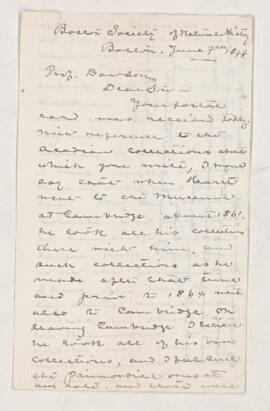 Boston Society of Natural History
Boston, June 7th 1878
Prof. Dawson,
Dear Sir -
Your postal
card was received today.
With reference to the
Acadian collections about
which you write, I would
say that when Hartt
went to the Museum
at Cambridge about 1861.
he took all his collections
there with him, and
such collections as he
made after that time
and prior to 1864 went
also to Cambridge. On
leaving Cambridge I believe
he took all of his own
collections, and
the Primordial ones at
and there were